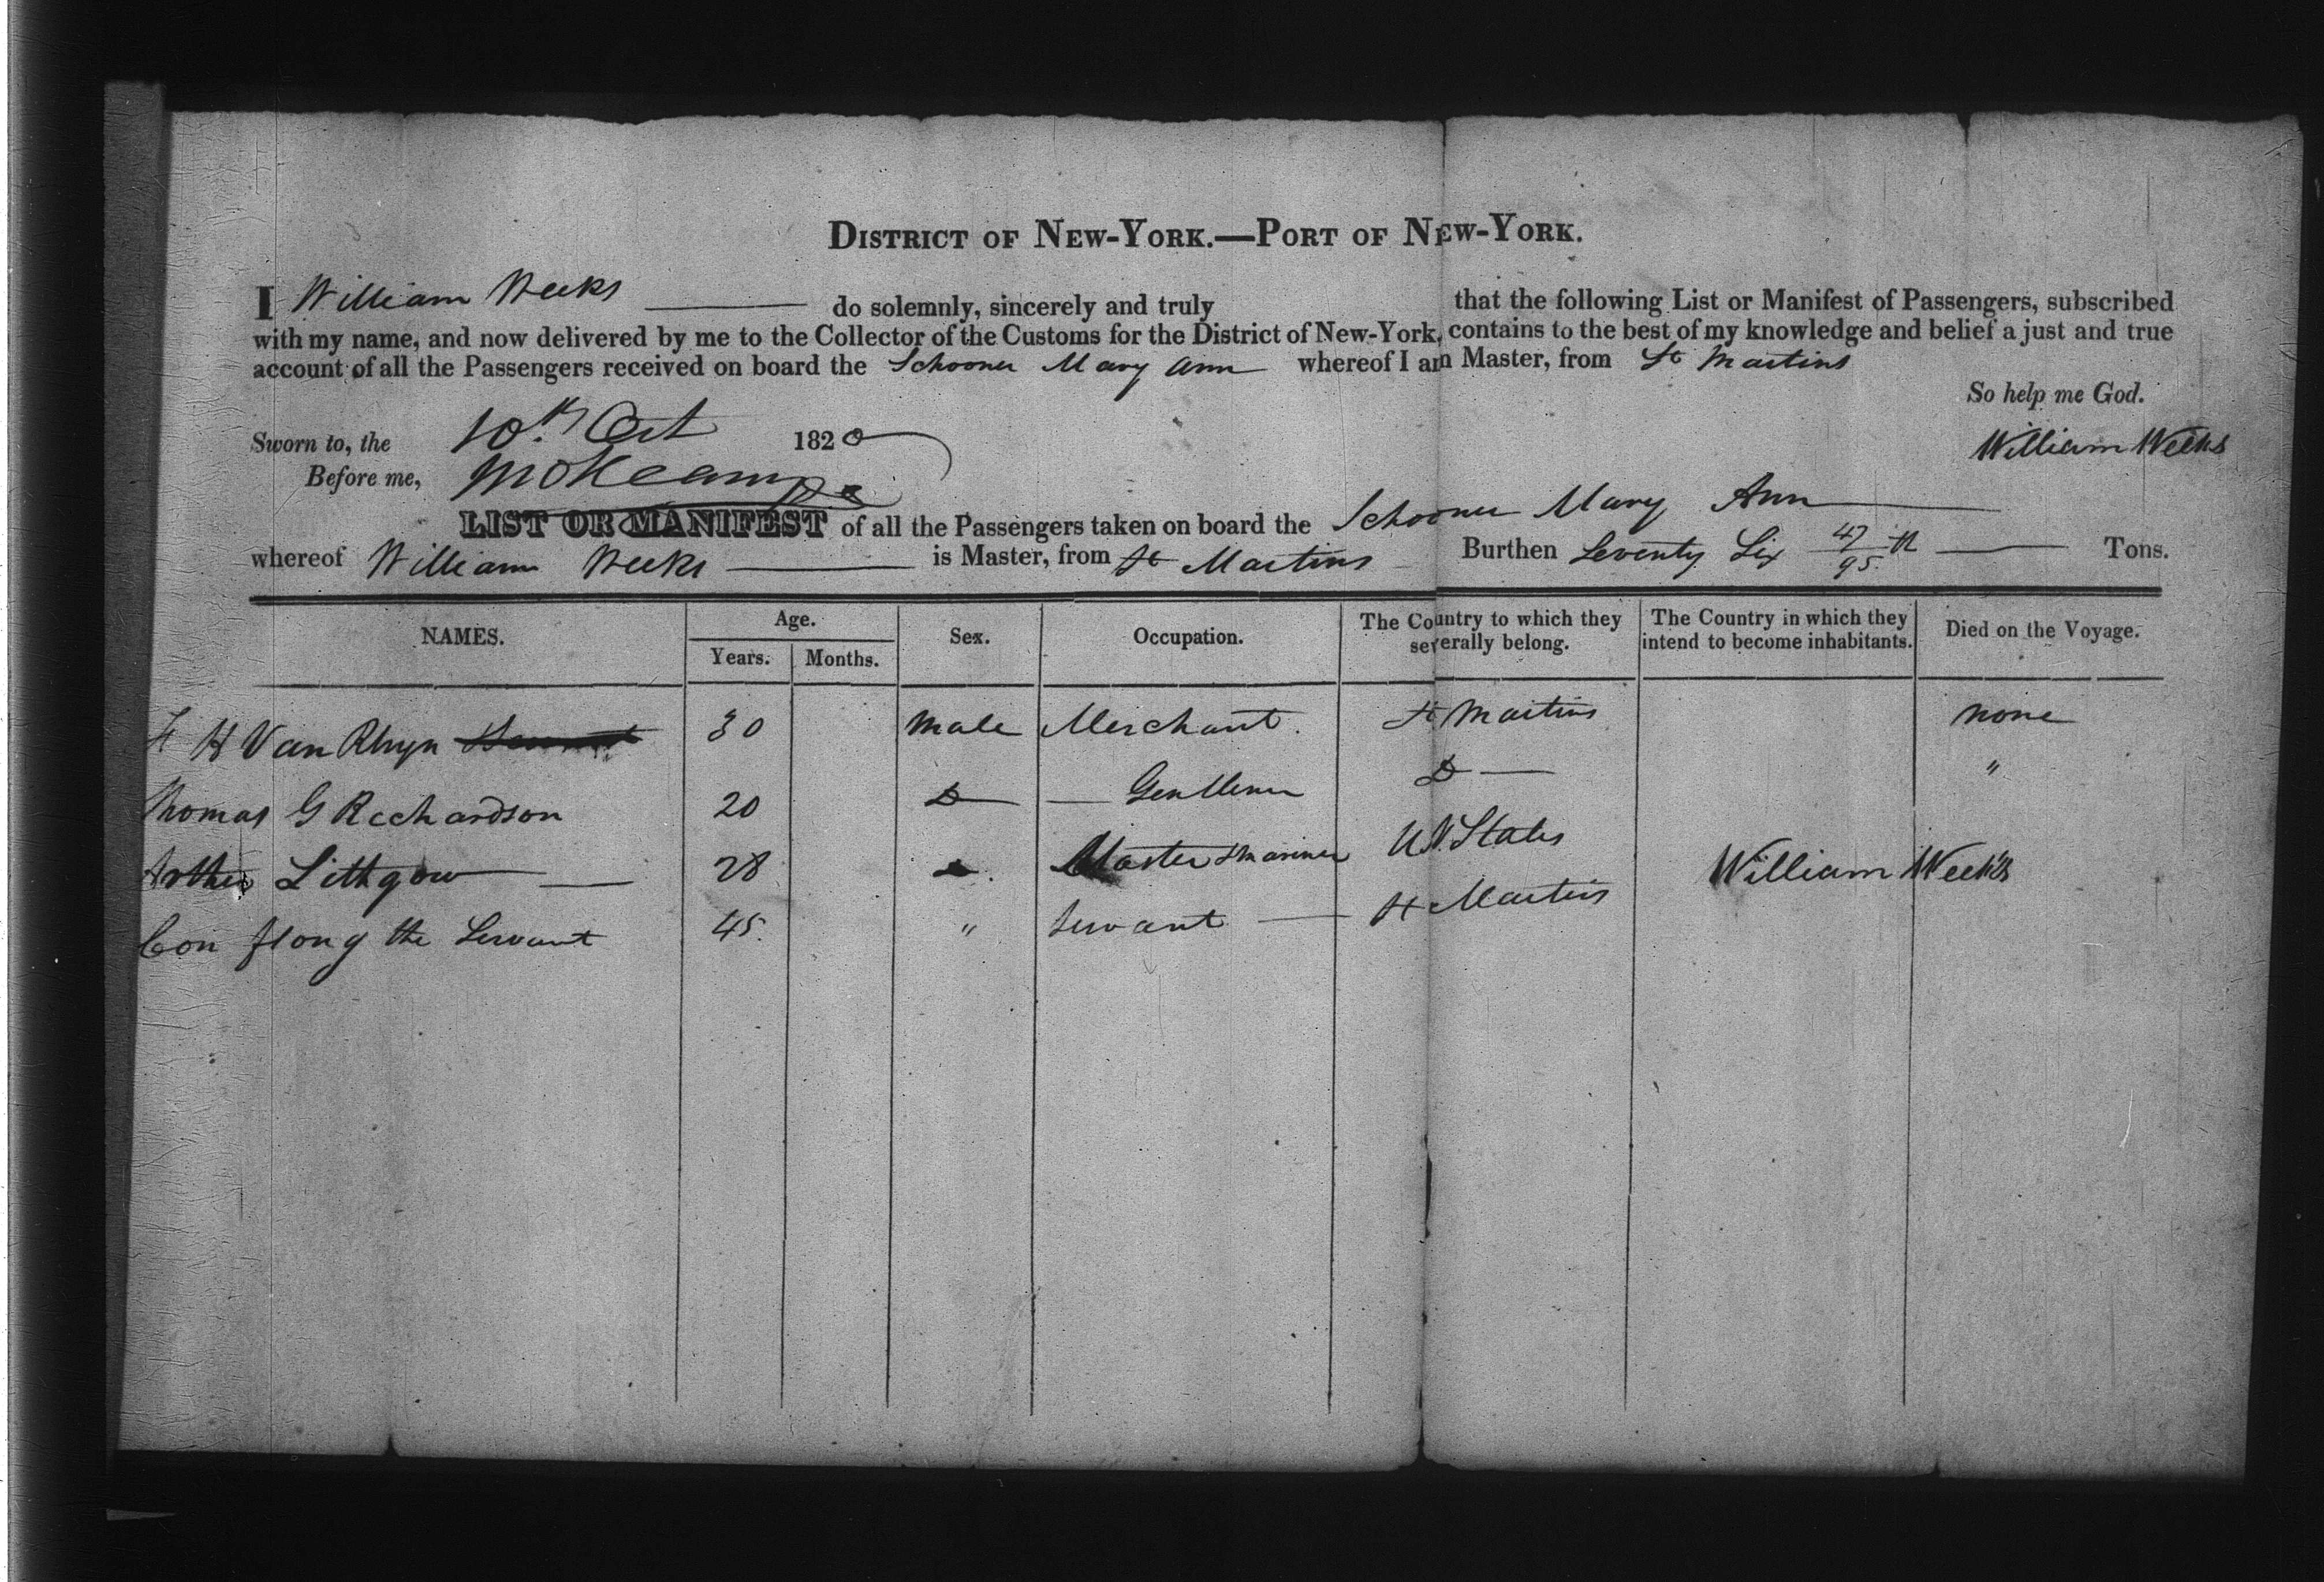 DISTRICT OF NEW-YORK.—PORT OF NEW-YORK.
I William Weeks do solemnly, sincerely and truly that the following List or Manifest of Passengers, subscribed
with my name, and now delivered by me to the Collector of the Customs for the District of New-York, contains to the best of my knowledge and belief a just and true
account of all the Passengers received on board the Schooner Mary Ann whereof I am Master, from St Martins
So help me God.
Sworn to, the 10th Oct 1820
William Weeks
Before me,
LIST OR MANIFEST of all the Passengers taken on board the Schooner Mary Ann
whereof William Weeks is Master, from St Martins Burthen Seventy Six 47/95 Tons.
NAMES. Age. Years. Months. Sex. Occupation. The Country to which they severally belong. The Country in which they intend to become inhabitants. Died on the Voyage.
H Van Rhyn 30 Male Merchant. St Martins none
Thomas G Richardson 20 Do Gentleman Do "
Arthur Lithgow 28 Master Mariner UN. States
William Weeks
the Servant 45. " Servant St Martins